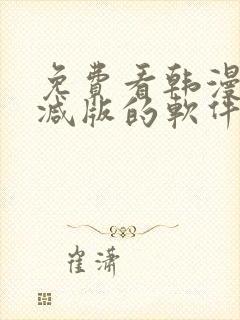 免費看韩漫
减版的軟件
崔潇